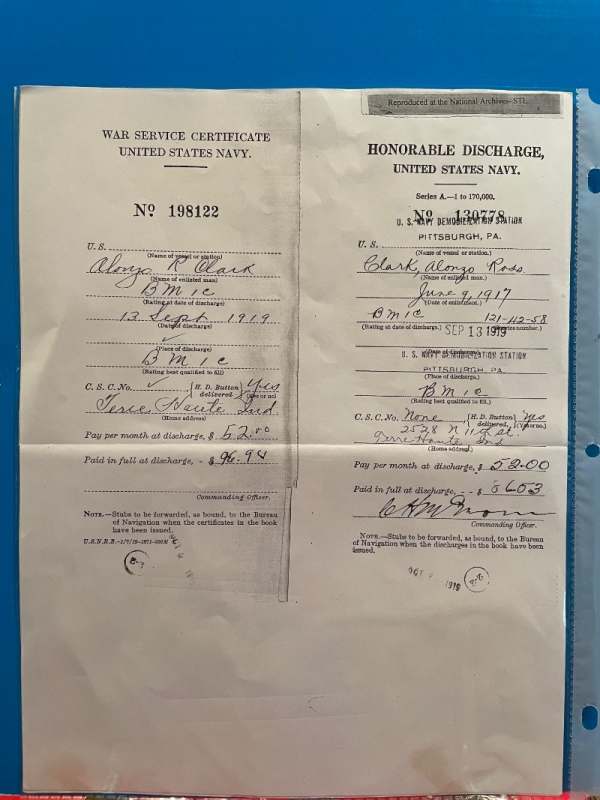 Reproduced at the National Archives-STL
WAR SERVICE CERTIFICATE
UNITED STATES NAVY.
No 198122
U. S.
(Name of vessel or station)
Alonzo R Clark
(Name of enlisted man)
B M 1 c
(Rating at date of discharge)
13 Sept 1919
(Date of discharge)
✓
(Place of discharge)
B M 1 c
(Rating best qualified to fill)
C. S. C. No. ✓ H. D. Button delivered Yes (Yes or no)
Terre Haute Ind
(Home address)
Pay per month at discharge, $ 52.00
Paid in full at discharge, - $ 96.94
Commanding Officer.
NOTE.—Stubs to be forwarded, as bound, to the Bureau
of Navigation when the certificates in the book
have been issued.
HONORABLE DISCHARGE,
UNITED STATES NAVY.
Series A.—1 to 170,000.
No 130778
U. S. NAVY DEMOBILIZATION STATION
PITTSBURGH, PA.
U. S.
(Name of vessel or station.)
Clark, Alonzo Ross
(Name of enlisted man.)
June 9, 1917
(Date of enlistment.)
B M 1 c 121-42-58
(Rating at date of discharge.) SEP 13 1919 (Service number.)
(Date of discharge.)
U. S. NAVY DEMOBILIZATION STATION
PITTSBURGH, PA.
(Place of discharge.)
B M 1 c
(Rating best qualified to fill.)
C. S. C. No. None H. D. Button delivered, Yes (Yes or no.)
2528 N 11th St.
Terre Haute Ind
(Home address.)
Pay per month at discharge, $ 52.00
Paid in full at discharge, - - $
Commanding Officer.
NOTE.—Stubs to be forwarded, as bound, to the Bureau
of Navigation when the discharges in the book have been
issued.
OCT 1919